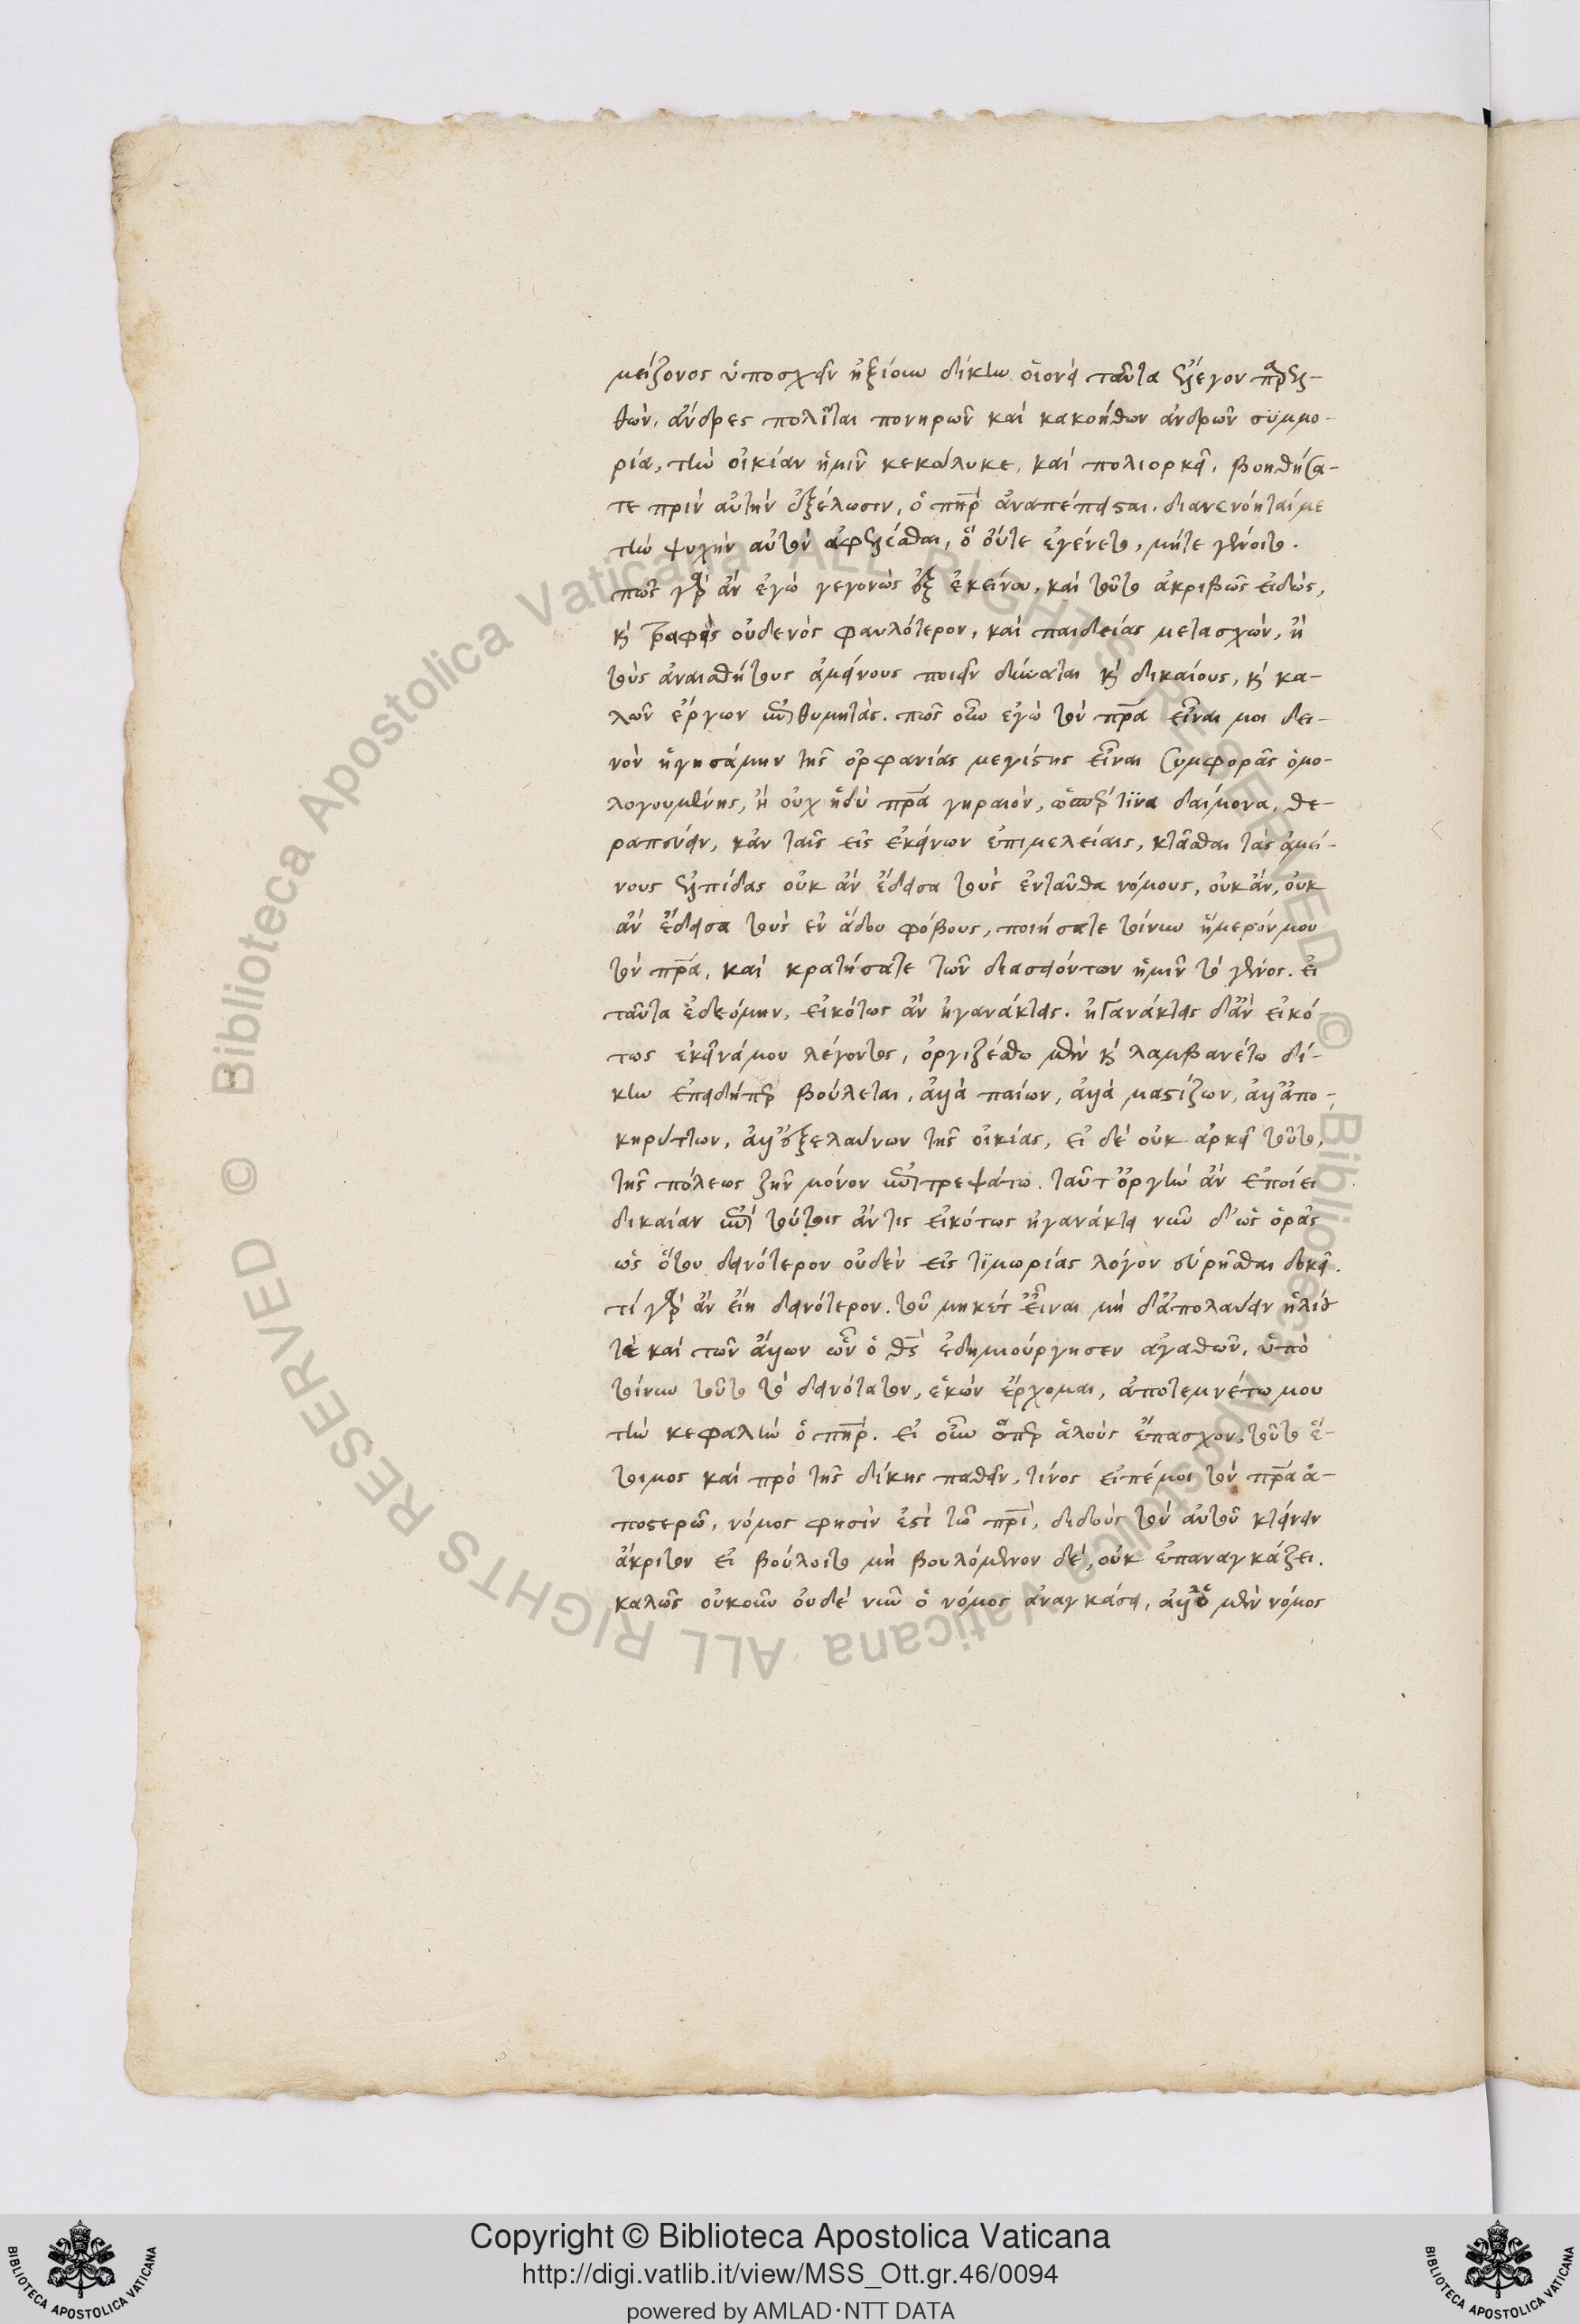 μείζονος ὑποσχεῖν ἠξίουν δίκην οἱονεὶ ταῦτα ἔλεγον παρελ-
θών, ἄνδρες πολῖται πονηρῶν καὶ κακοήθων ἀνδρῶν συμμο-
ρία, τὴν οἰκίαν ἡμῖν κεκώλυκε, καὶ πολιορκεῖ, βοηθήσα-
τε πρὶν αὐτὴν ἐξέλωσιν, ὁ πὴρ ἀναπέπεισται. διανενόηταί με
τὴν ψυχὴν αὐτὸν ἀφελέσθαι, ὃ οὔτε ἐγένετο, μήτε γένοιτο.
πῶς γὰρ ἂν ἐγὼ γεγονὼς ἐξ ἐκείνου, καὶ τοῦτο ἀκριβῶς εἰδώς,
καὶ τραφεὶς οὐδενὸς φαυλότερον, καὶ παιδείας μετασχών, ἢ
τοὺς ἀναισθήτους ἀμείνους ποιεῖν δύναται καὶ δικαίους, καὶ κα-
λῶν ἔργων ἐπιθυμητάς. πῶς οὖν ἐγὼ τὸν πρα εἶναι μοι δει-
νὸν ἡγησάμην τῆς ὀρφανίας μεγίστης εἶναι συμφορᾶς ὁμο-
λογουμένης, ἢ οὐχ ἡδὺ πρα γηραιόν, ὥσπερ τινα δαίμονα, θε-
ραπεύειν, κἀν ταῖς εἰς ἐκείνων ἐπιμελείαις, κτᾶσθαι τὰς ἀμεί-
νους ἐλπίδας οὐκ ἂν ἔδεισα τοὺς ἐνταῦθα νόμους, οὐκ ἄν, οὐκ
ἂν ἔδεισα τοὺς ἐν ἅδου φόβους, ποιήσατε τοίνυν ἥμερόν μου
τὸν πρα, καὶ κρατήσατε τῶν διασειόντων ἡμῖν τὸ γένος. εἰ
ταῦτα ἐδεόμην, εἰκότως ἂν ἠγανάκτεις. ἠγανάκτεις δ' ἂν εἰκό-
τως ἐκεῖνά μου λέγοντος, ὀργιζέσθω μὲν καὶ λαμβανέτω δί-
κην ἐπειδήπερ βούλεται, ἀλλὰ παίων, ἀλλὰ μαστίζων, ἀλλ' ἀπο-
κηρύττων, ἀλλ' ἐξελαύνων τῆς οἰκίας, εἰ δὲ οὐκ ἀρκεῖ τοῦτο,
τῆς πόλεως ζῆν μόνον ἐπιτρεψάτω. ταῦτ' ὀργὴν ἂν ἐποίει
δικαίαν ἐπὶ τούτοις ἄν τις εἰκότως ἠγανάκτει νῦν δ' ὡς ὁρᾷς
ὡς ὅτου δεινότερον οὐδὲν εἰς τιμωρίας λόγον εὑρῆσθαι δοκεῖ.
τί γὰρ ἂν εἴη δεινότερον. τοῦ μηκέτ' εἶναι μὴ δ' ἀπολαύειν ἡλίου
τε καὶ τῶν ἄλλων ὧν ὁ θς ἐδημιούργησεν ἀγαθῶν, ὑπὸ
τοίνυν τοῦτο τὸ δεινότατον, ἑκὼν ἔρχομαι, ἀποτεμνέτω μου
τὴν κεφαλὴν ὁ πήρ. εἰ οὖν ὅπερ ἁλοὺς ἔπασχον, τοῦτο ἕ-
τοιμος καὶ πρὸ τῆς δίκης παθεῖν, τίνος εἰπέ μοι τὸν πρα ἀ-
ποστερῶ, νόμος φησὶν ἐστὶ τῶ πρὶ, διδοὺς τὸν αὐτοῦ κτείνειν
ἄκριτον εἰ βούλοιτο μὴ βουλόμενον δέ, οὐκ ἐπαναγκάζει.
καλῶς οὐκοῦν οὐδὲ νῦν ὁ νόμος ἀναγκάσει, ἀλλ' ὁ μὲν νόμος
Copyright © Biblioteca Apostolica Vaticana
http://digi.vatlib.it/view/MSS_Ott.gr.46/0094
powered by AMLAD·NTT DATA